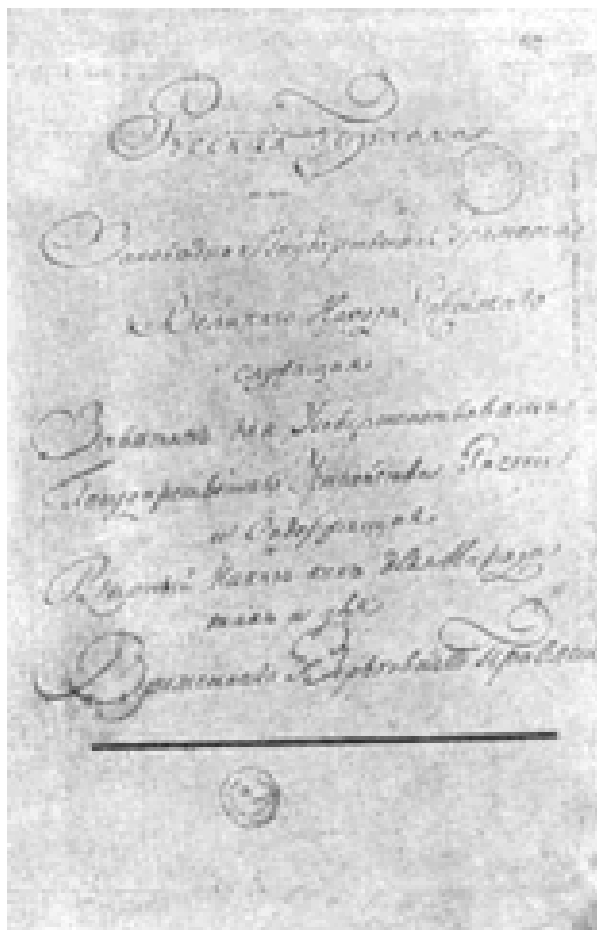 Руская Правда
Заповѣдная Государственная Грамота
Великаго Народа Россійскаго
служащая
Завѣтомъ для Усовершенствованія
Государственнаго Устройства Россіи
и Содержащая
Вѣрный Наказъ какъ для Народа
такъ и для
Временнаго Верховнаго Правленія